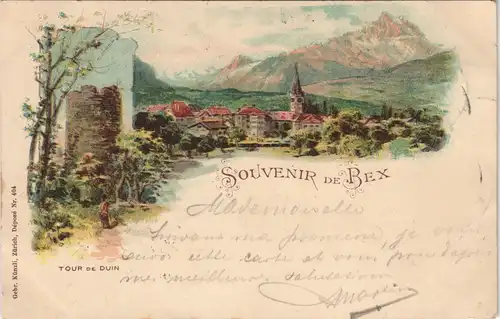 SOUVENIR DE BEX
TOUR DE DUIN
Gebr. Künzli, Zürich, Déposé Nr. 404
Mademoiselle
Suivant ma promesse, je
cette carte et vous
mes meilleures salutations